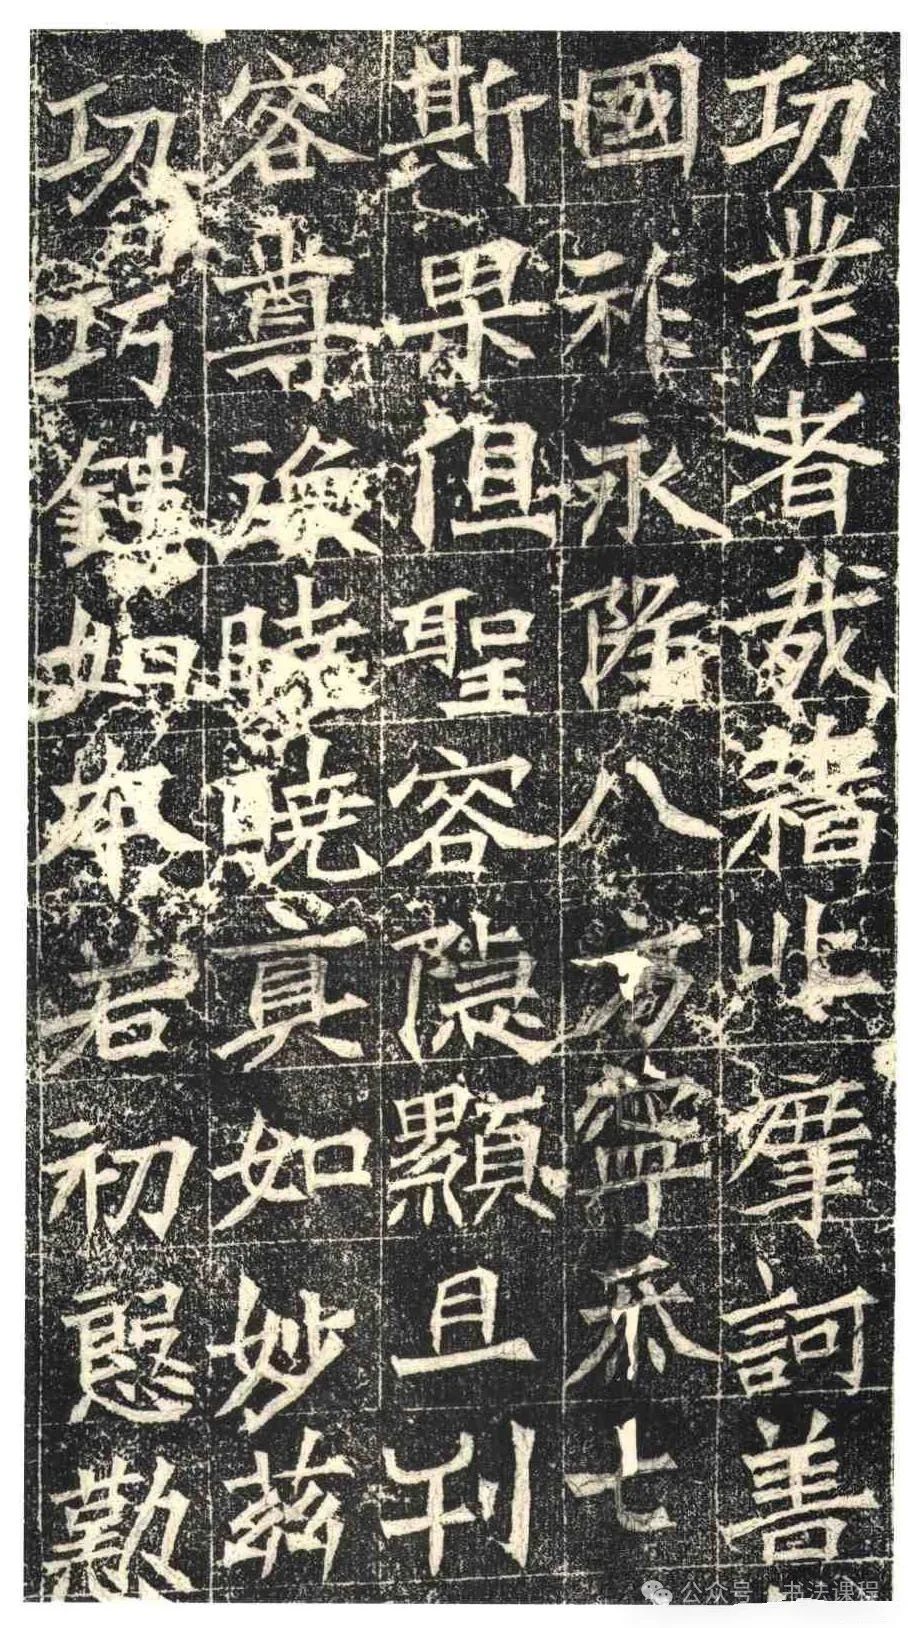 功業者哉藉此摩訶善
國祚永隆八方寧泰七
斯果但聖容隱顯且刊
容尊曉曉真如妙茲
功巧鏤如本若初慇懃
公众号 书法课程